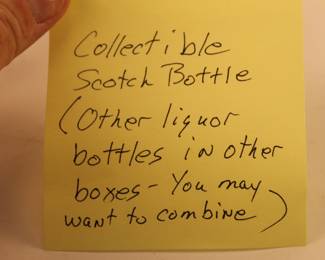 Collectible
Scotch Bottle
(Other liquor
bottles in other
boxes - You may
want to combine)